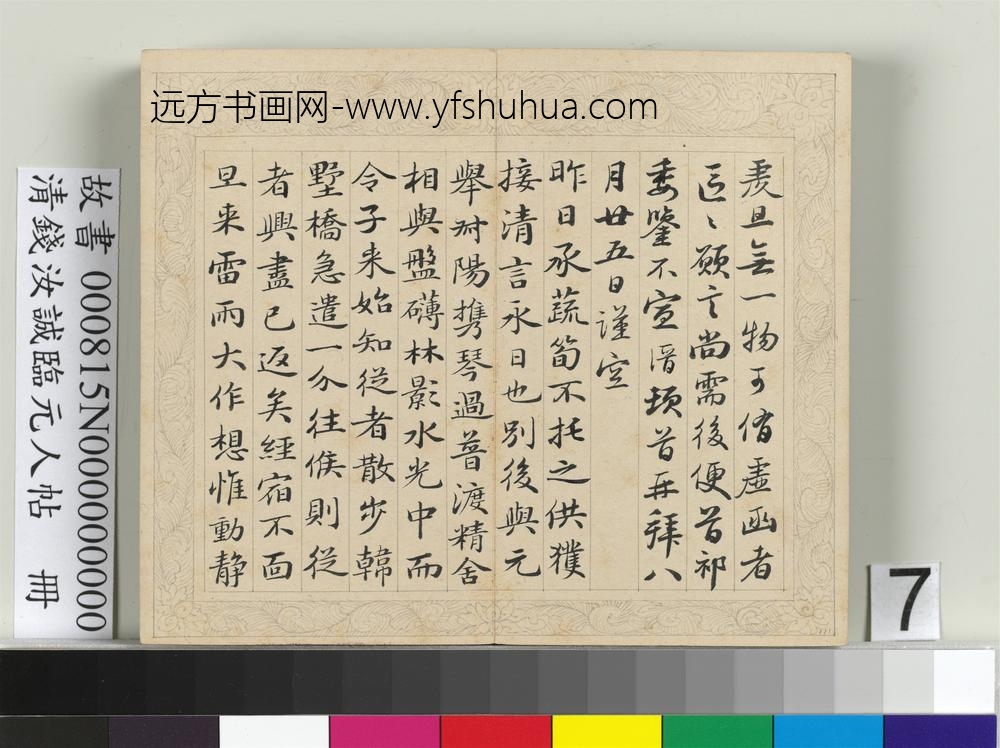 远方书画网-www.yfshuhua.com
羑且無一物可侑盧函者
區〻願言尚需後便首祁
委鑒不宣溍頓首再拜八
月廿五日謹空
昨日承蔬筍不托之供獲
接清言永日也別後與元
舉附陽攜琴過普渡精舍
相與盤礴林影水光中而
令子来始知從者散步韓
墅橋急遣一介往候則從
者興盡已返矣經宿不面
旦来雷雨大作想惟動静
故書 000815N000000000
清錢汝誠臨元人帖 冊
7